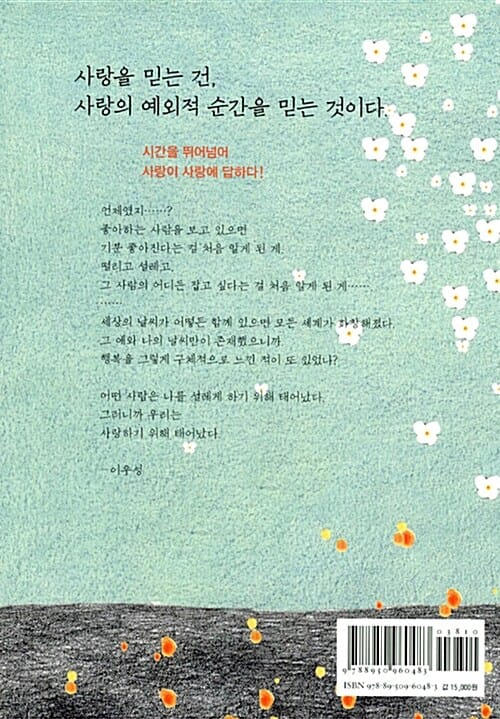 사랑을 믿는 건,
사랑의 예외적 순간을 믿는 것이다.
시간을 뛰어넘어
사랑이 사랑에 답하다!
언제였지……?
좋아하는 사람을 보고 있으면
기분 좋아진다는 걸 처음 알게 된 게.
떨리고 설레고,
그 사람의 어디든 잡고 싶다는 걸 처음 알게 된 게……
……
세상의 날씨가 어떻든 함께 있으면 모든 세계가 화창해졌다.
그 애와 나의 날씨만이 존재했으니까.
행복을 그렇게 구체적으로 느낀 적이 또 있었나?
어떤 사람은 나를 설레게 하기 위해 태어났다.
그러니까 우리는
사랑하기 위해 태어났다.
–이우성
03810
9 788950 960483
ISBN 978-89-509-6048-3 값 15,000원